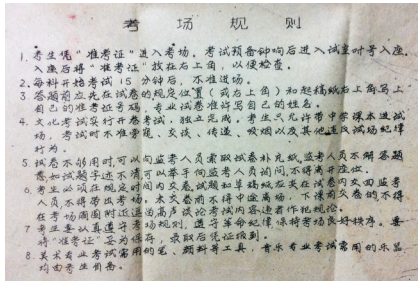 考场规则
1.考生凭“准考证”进入考场，考试预备钟响后进入试室对号入座，
入座后将“准考证”放在右上角，以便检查。
2.每科开始考试15分钟后，不准进场。
3.答题前应先在试卷的规定位置（或右上角）和起稿纸右上角写上
自己的准考证号码，专业试卷准许写自己的姓名。
4.文化考试实行开卷考试，独立完成，考生只允许带中学课本进试
场，考试时不准旁窥、交谈、传递、吸烟以及其他违反试场纪律
行为。
5.试卷不够用时，可以向监考人员索取试卷补充纸，监考人员不解答题
意如试题字迹不清可以举手向监考人员询问，不得离开座位。
6.考生必须在规定时间内交卷，试题和草稿纸应夹在试卷内交回监考
人员不得带出考场。未交卷前不得中途离场，下课前交卷的不得
在考场周围附近逗留高声谈论考试内容违者作犯规论。
7.考生要认真遵守考场规则，遵守革命纪律保持考场良好秩序。要
将“准考证”妥为保存，录取后凭证报到。
8.美术专业考试需用的笔、颜料等工具，音乐专业考试需用的乐器
均由考生自备。